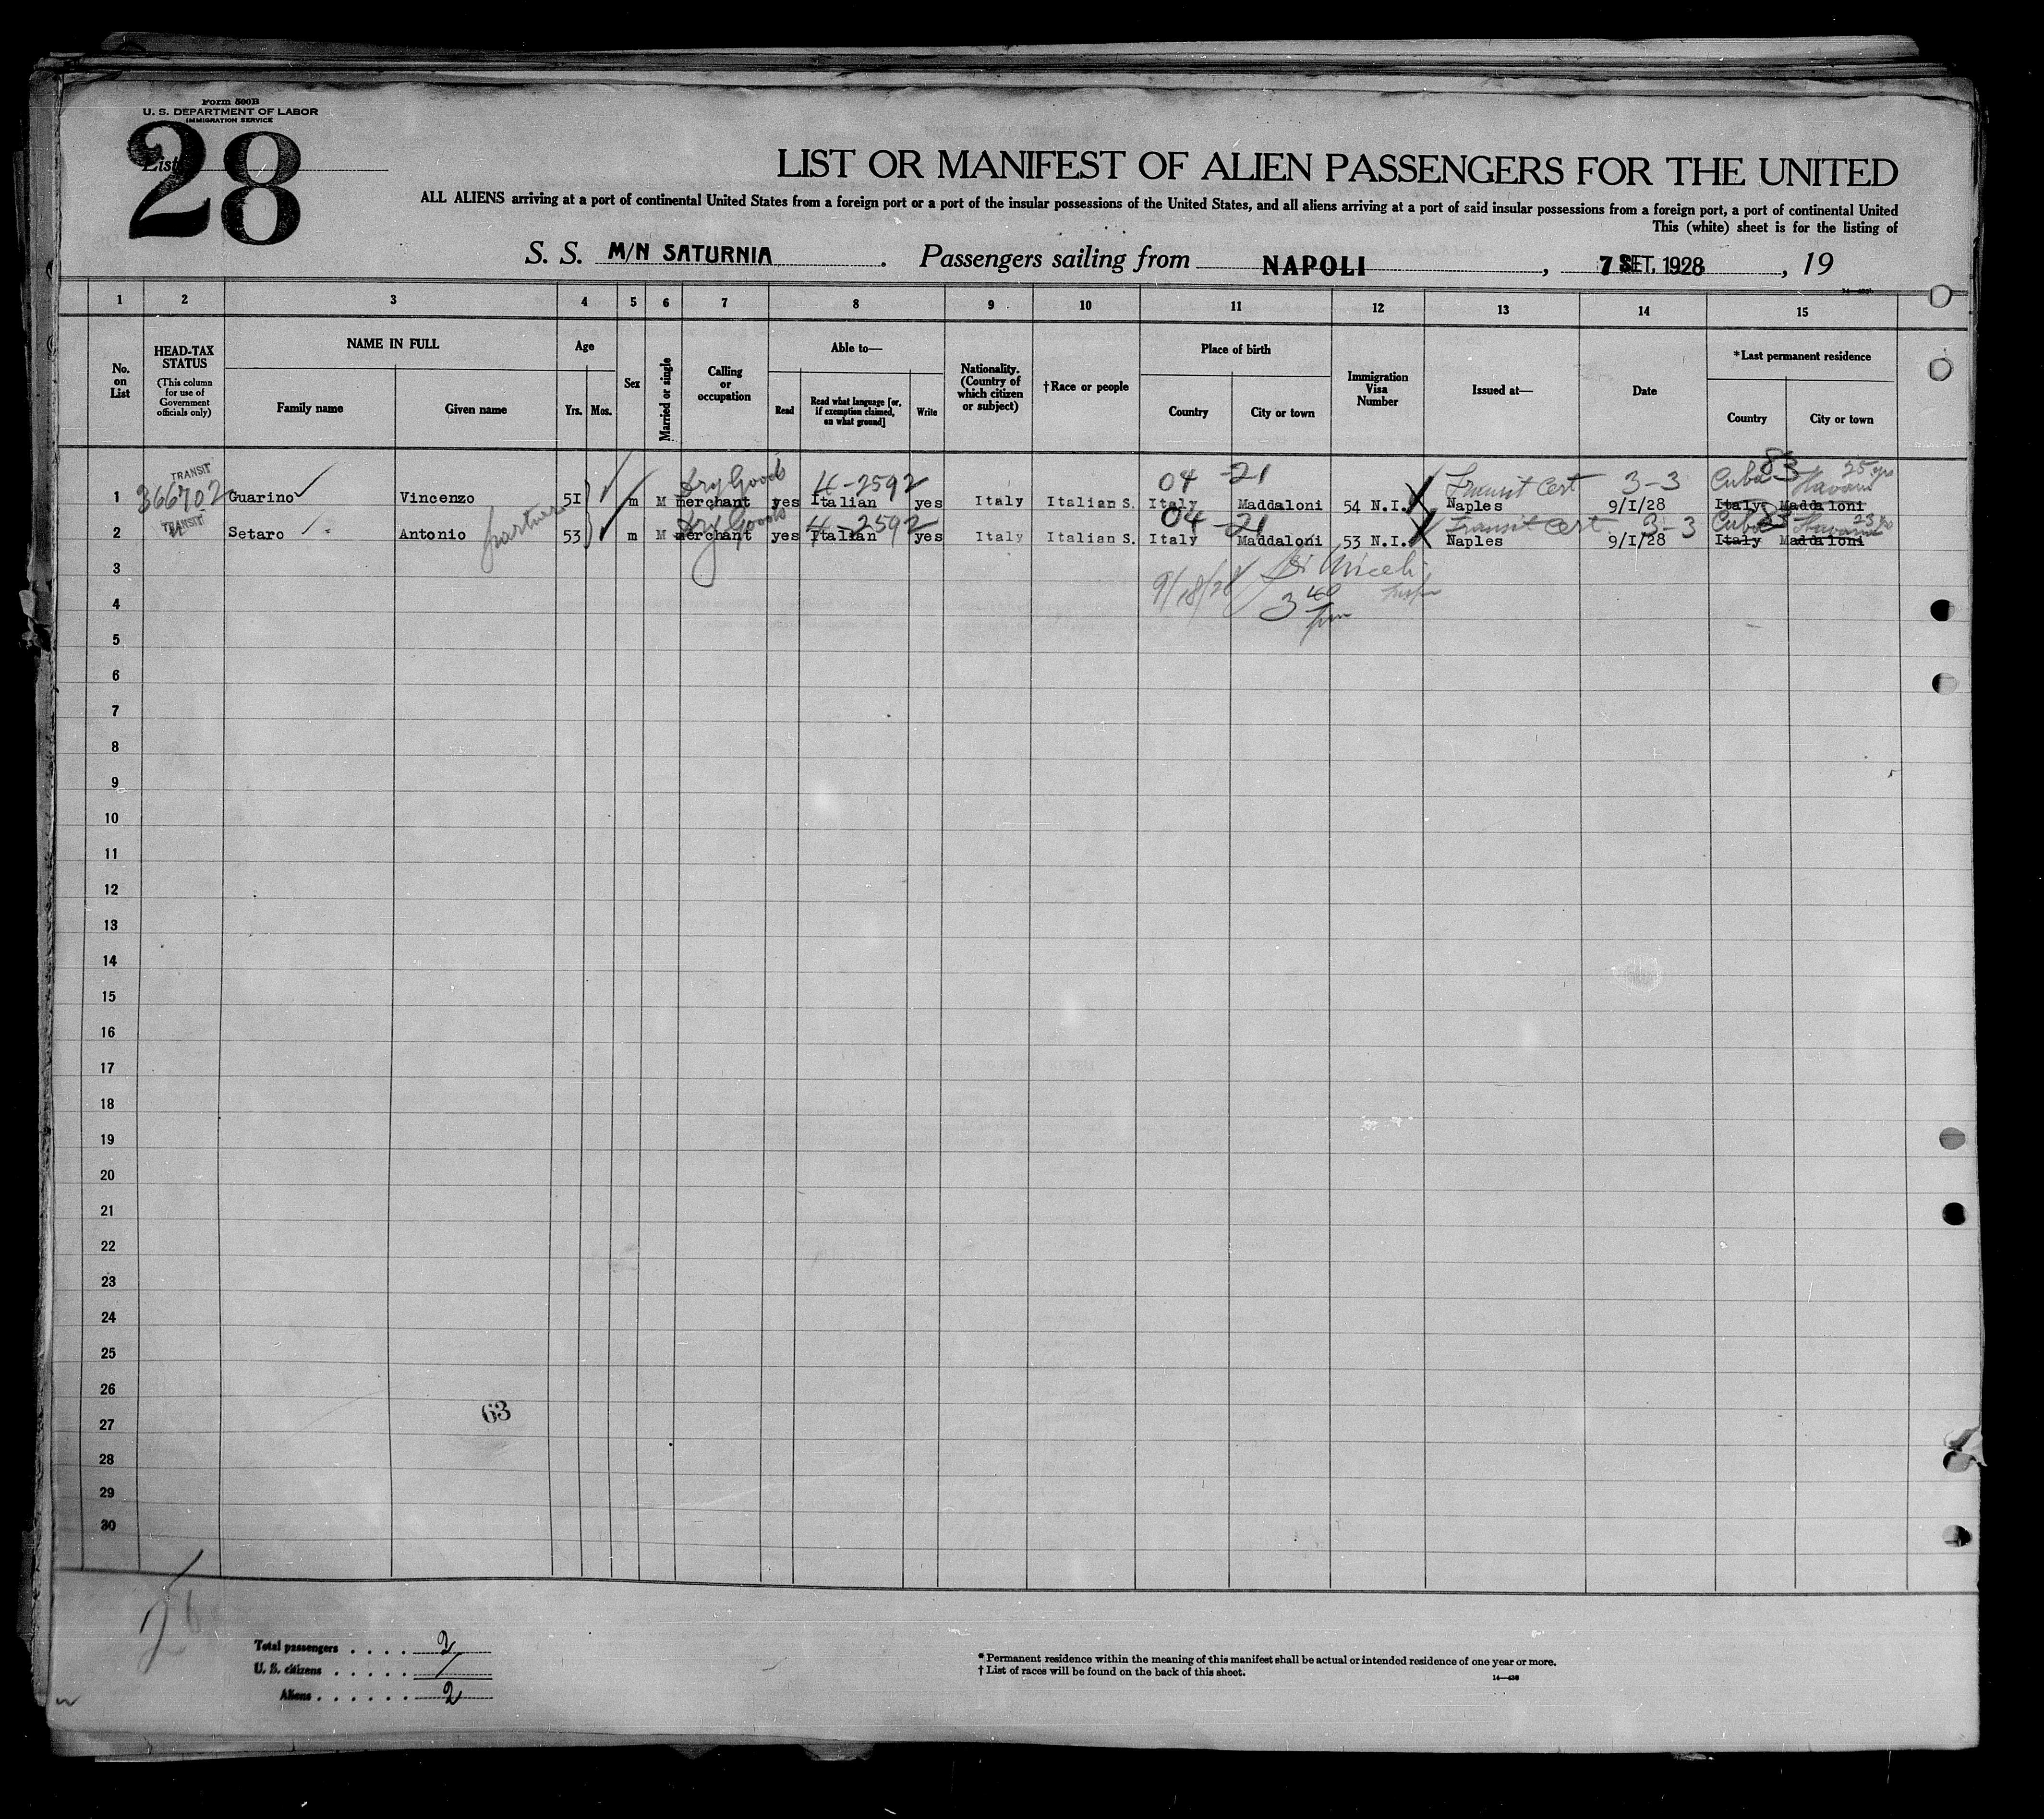 Form 500B
U. S. DEPARTMENT OF LABOR
IMMIGRATION SERVICE
List
28
LIST OR MANIFEST OF ALIEN PASSENGERS FOR THE UNITED
ALL ALIENS arriving at a port of continental United States from a foreign port or a port of the insular possessions of the United States, and all aliens arriving at a port of said insular possessions from a foreign port, a port of continental United
This (white) sheet is for the listing of
S. S. M/N SATURNIA. Passengers sailing from NAPOLI, 7 SET. 1928, 19
1 2 3 4 5 6 7 8 9 10 11 12 13 14 15
No. on List
HEAD-TAX STATUS
(This column for use of Government officials only)
NAME IN FULL
Family name
Given name
Age
Yrs.
Mos.
Sex
Married or single
Calling or occupation
Able to—
Read
Read what language [or, if exemption claimed, on what ground]
Write
Nationality. (Country of which citizen or subject)
†Race or people
Place of birth
Country
City or town
Immigration Visa Number
Issued at—
Date
*Last permanent residence
Country
City or town
TRANSIT Dry Goods 4-2592 04 -21 Transit Cert 3-3 Cuba 83 Havana 25 yrs
1 366702 Guarino Vincenzo 51 m M merchant yes Italian yes Italy Italian S. Italy Maddaloni 54 N.I. Naples 9/I/28 Italy Maddaloni
TRANSIT partner Dry Goods 4-2592 04 -21 Transit Cert 3-3 Cuba 83 Havana
2 Setaro Antonio 53 m M merchant yes Italian yes Italy Italian S. Italy Maddaloni 53 N.I. Naples 9/I/28 Italy Maddaloni
3 9/18/28
4 3 40 pm
5
6
7
8
9
10
11
12
13
14
15
16
17
18
19
20
21
22
23
24
25
26
63
27
28
29
30
Total passengers . . . . 2
U. S. citizens . . . . . /
Aliens . . . . . . 2
* Permanent residence within the meaning of this manifest shall be actual or intended residence of one year or more.
† List of races will be found on the back of this sheet.